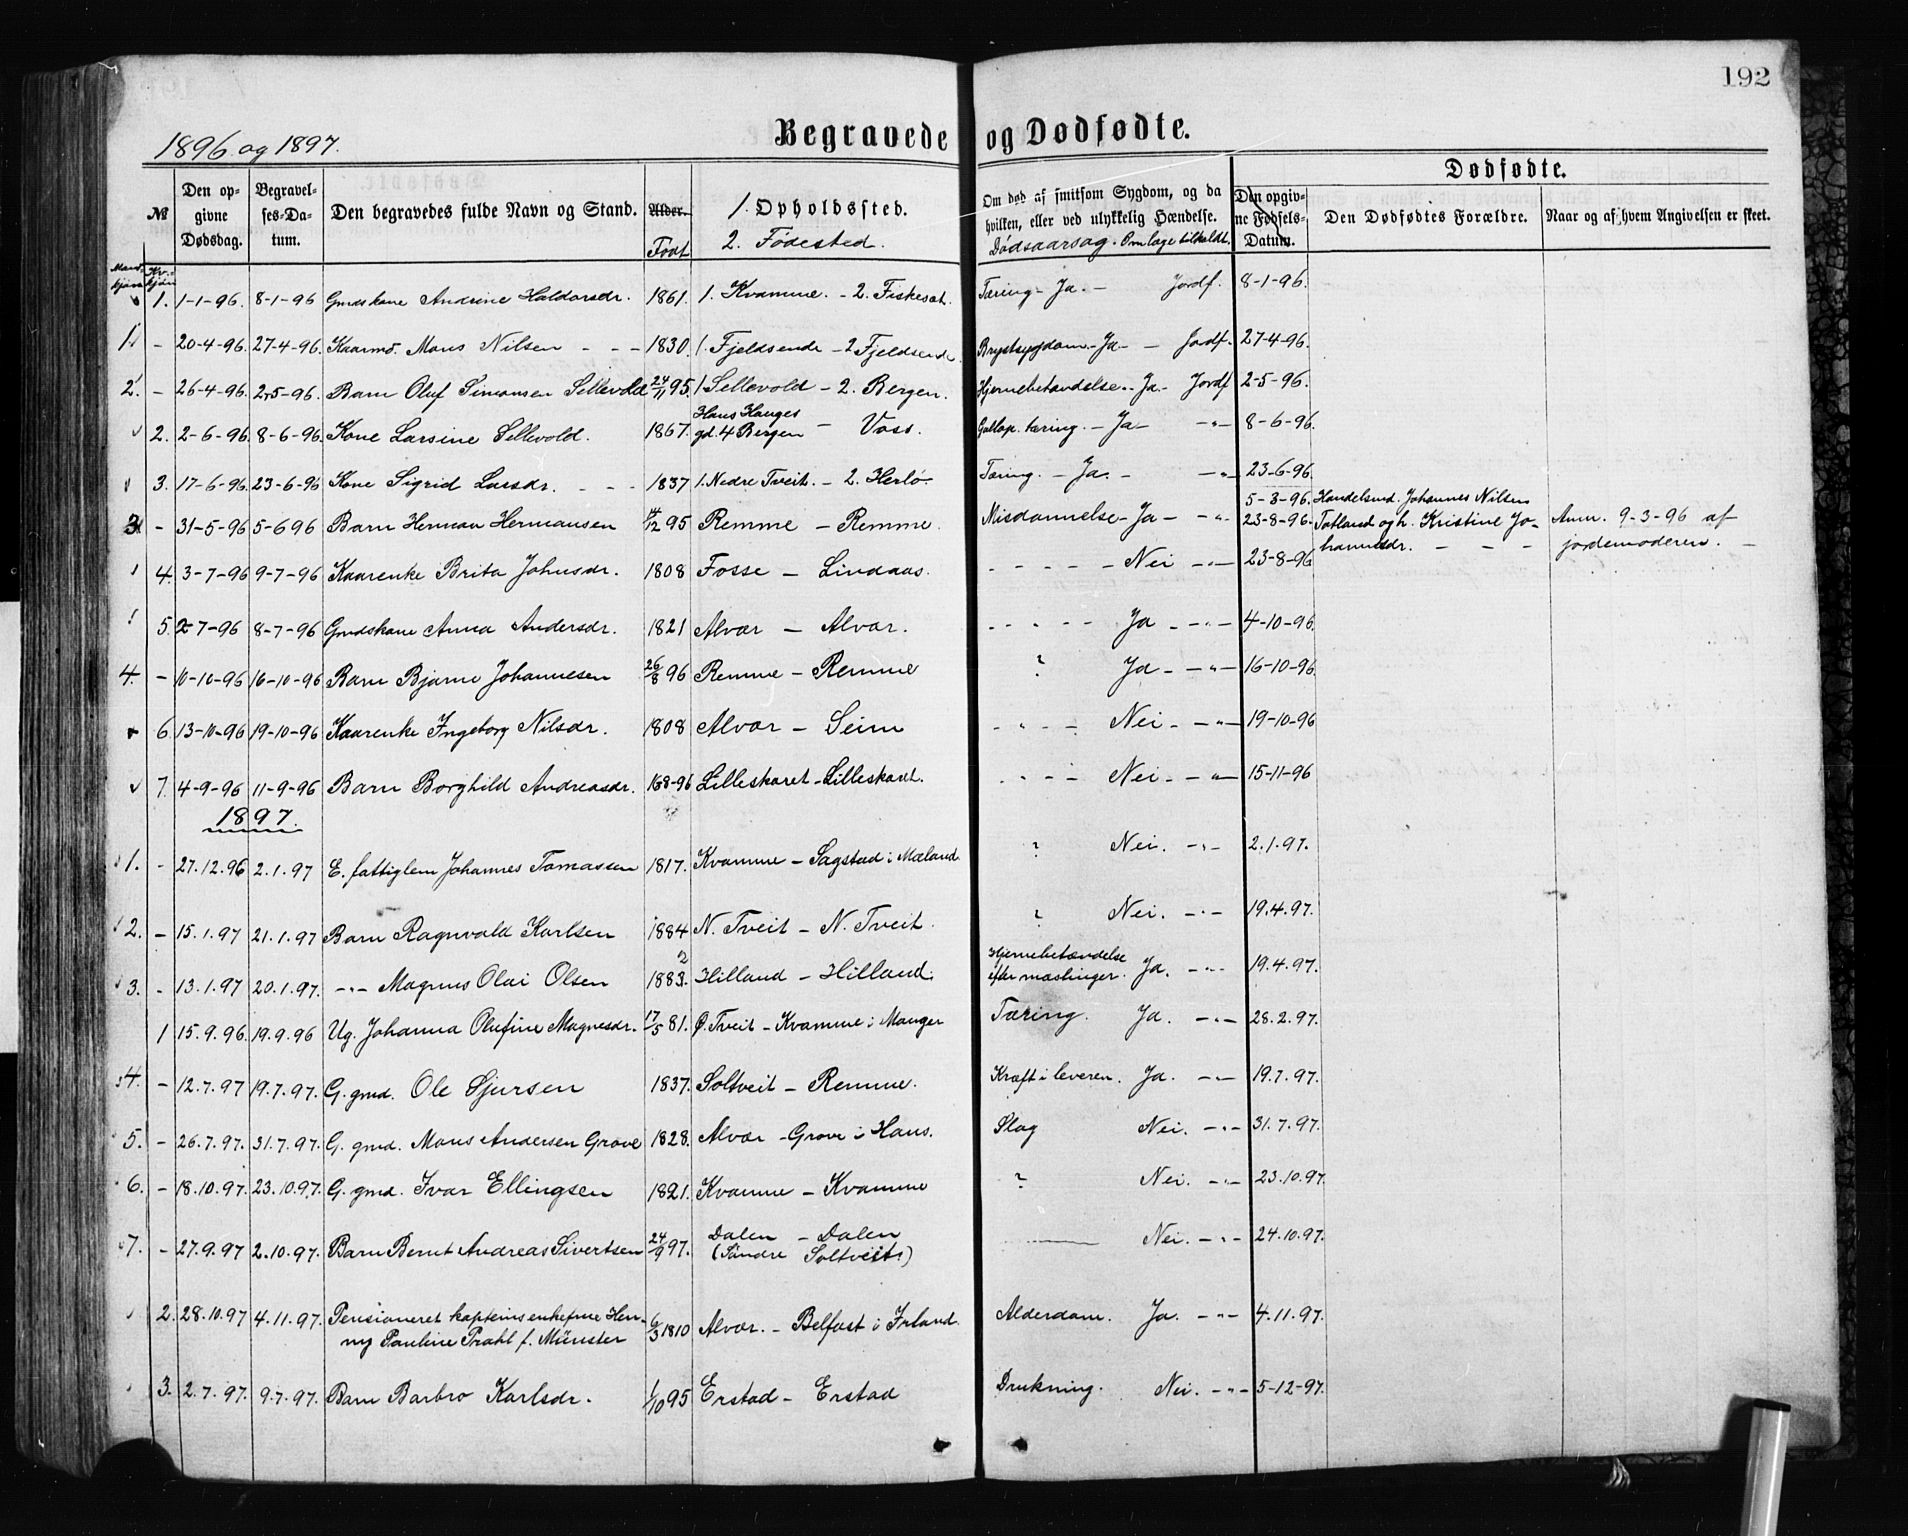 192
1896 og 1897.
Begravede og Dødfødte.
№
Den opgivne Dødsdag.
Begravelses-Datum.
Den begravedes fulde Navn og Stand.
Alder. Født
1. Opholdssted.
2. Fødested.
Om død af smitsom Sygdom, og da hvilken, eller ved ulykkelig Hændelse.
Dødsaarsag. Om læge tilkaldt.
Dødfødte.
Den opgivne Fødsels-Datum.
Den Dødfødtes Forældre.
Naar og af hvem Angivelsen er skeet.
Mandkjøn Kv.kjøn
1. 1-1-96. 8-1-96 Gmdskone Andrine Haldorsdr. 1861. 1. Kvamme. - 2. Fiskeset. Tæring - Ja. - Jordf. 8-1-96.
1. - 20-4-96. 27-4-96. Kaarmd. Mons Nilsen - - - 1830. 1. Fjeldsende - 2 Fjeldsende. Brystsygdom - Ja - - Jordf. 27-4-96.
2. - 26-4-96. 2-5-96. Barn Oluf Simonsen Sellevold 24/11 95. 1 Sellevold - 2. Bergen. Hjernebetændelse. - Ja - Jordf 2-5-96.
2. 2-6-96. 8-6-96. Kone Larsine Sellevold. 1867. Hans Hauges gd. 4 Bergen - Voss. Gallop. tæring. - Ja - - " - 8-6-96.
3. 17-6-96. 23-6-96 Kone Sigrid Larsdr. - - - 1837 1. Nedre Tveit. - 2. Herlø. Tæring. - Ja. - - " 23-6-96.
5-3-96. Handelsmd. Johannes Nilsen
3. - 31-5-96 5-6 96 Barn Herman Hermansen 14/12 95 Remme - Remme. Misdannelse - Ja - - " - 23-8-96. Tatland og h. Kristine Jo- Anm. 9-3-96 af
hannesdr. - - - jordemoderen. -
4. 3-7-96 9-7-96 Kaarenke Brita Johnsdr. 1808 Fosse - Lindaas. - - - - - Nei - " - 23-8-96
5. 2-7-96 8-7-96 Gmdskone Anna Andersdr. 1821 Alvær - Alvær. - - - - - Ja - - " - 4-10-96.
4. - 10-10-96 16-10-96 Barn Bjarne Johannesen 26/8 96 Remme - Remme ? Ja - - " - 16-10-96.
6. 13-10-96 19-10-96 Kaarenke Ingeborg Nilsdr. 1808 Alvær - Seim - - - Nei - - " - 19-10-96
7. 4-9-96 11-9-96 Barn Borghild Andreasdr. 168-96 Lilleskaret - Lilleskaret. - - - - Nei - - " - 15-11-96
1897.
1. - 27.12.96 2.1.97 E. fattiglem Johannes Tomassen 1817. Kvamme - Sagstad i Mæland. ? Nei. - " - 2.1.97.
2. - 15.1.97 21.1.97 Barn Ragnvald Karlsen 1884 N. Tveit - N. Tveit. ? Nei. - " - 19.4.97.
3. - 13.1.97 20.1.97. - " - Magnus Olai Olsen 1883. 2 Hilland - Hilland. Hjernebetændelse efter mæslinger. Ja. - " - 19.4.97.
1 15.9.96. 19.9.96 Ug. Johanna Olufine Magnesdr. 17/5 81. Ø. Tveit - Kvamme i Manger Tæring. Ja. - " - 28.2.97.
4. - 12.7.97 19.7.97. G. gmd. Ole Sjursen 1837. Soltveit - Remme. Kræft i leveren. Ja. - " - 19.7.97.
5. - 26.7.97. 31.7.97. G. gmd. Mons Andersen Grove 1828. Alvær - Grove i Haus. Slag Nei. - " - 31.7.97.
6. - 18.10.97. 23.10.97. G. gmd. Ivar Ellingsen 1821. Kvamme - Kvamme ? Nei. - " - 23.10.97.
7. - 27.9.97 2.10.97. Barn Bernt Andreas Sivertsen 24/9 97. Dalen - Dalen (Søndre Soltveit.) Nei. - " - 24.10.97.
2. 28.10.97 4.11.97. Pensioneret kapteinsenkefrue Hen- 6/3 1810 Alvær. - Belfast i Irland. Alderdom. Ja. - " - 4.11.97.
ny Pauline Prahl f. Münster
3. 2.7.97. 9.7.97. Barn Barbro Karlsdr. 1/10 95 Erstad - Erstad Drukning. Nei. - " - 5-12-97.